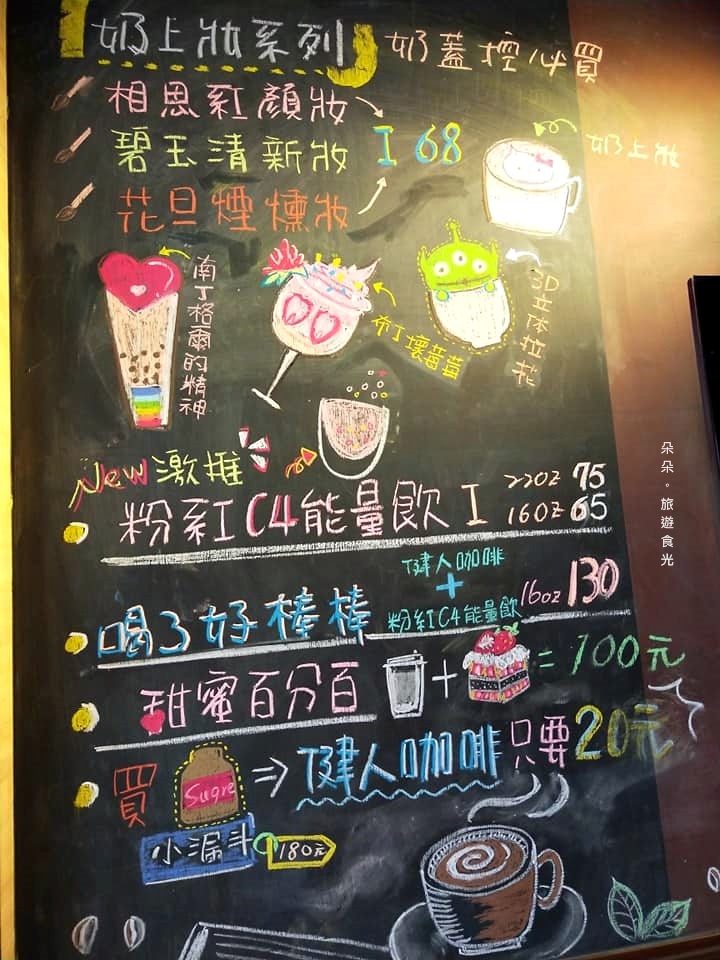 奶上妝系列
奶蓋控必買
相思紅顏妝
碧玉清新妝 I 68
花旦煙燻妝
奶上妝
南丁格爾的精神
布丁壞莓莓
3D立体拉花
New 激推
粉紅C4能量飲 I 22oz 75
16oz 65
健人咖啡
+
粉紅C4能量飲
喝了好棒棒 16oz 130
甜蜜百分百 + = 100元
買 Sugre ⇒ 健人咖啡 只要20元
小漏斗 180元
朵朵。旅遊食光